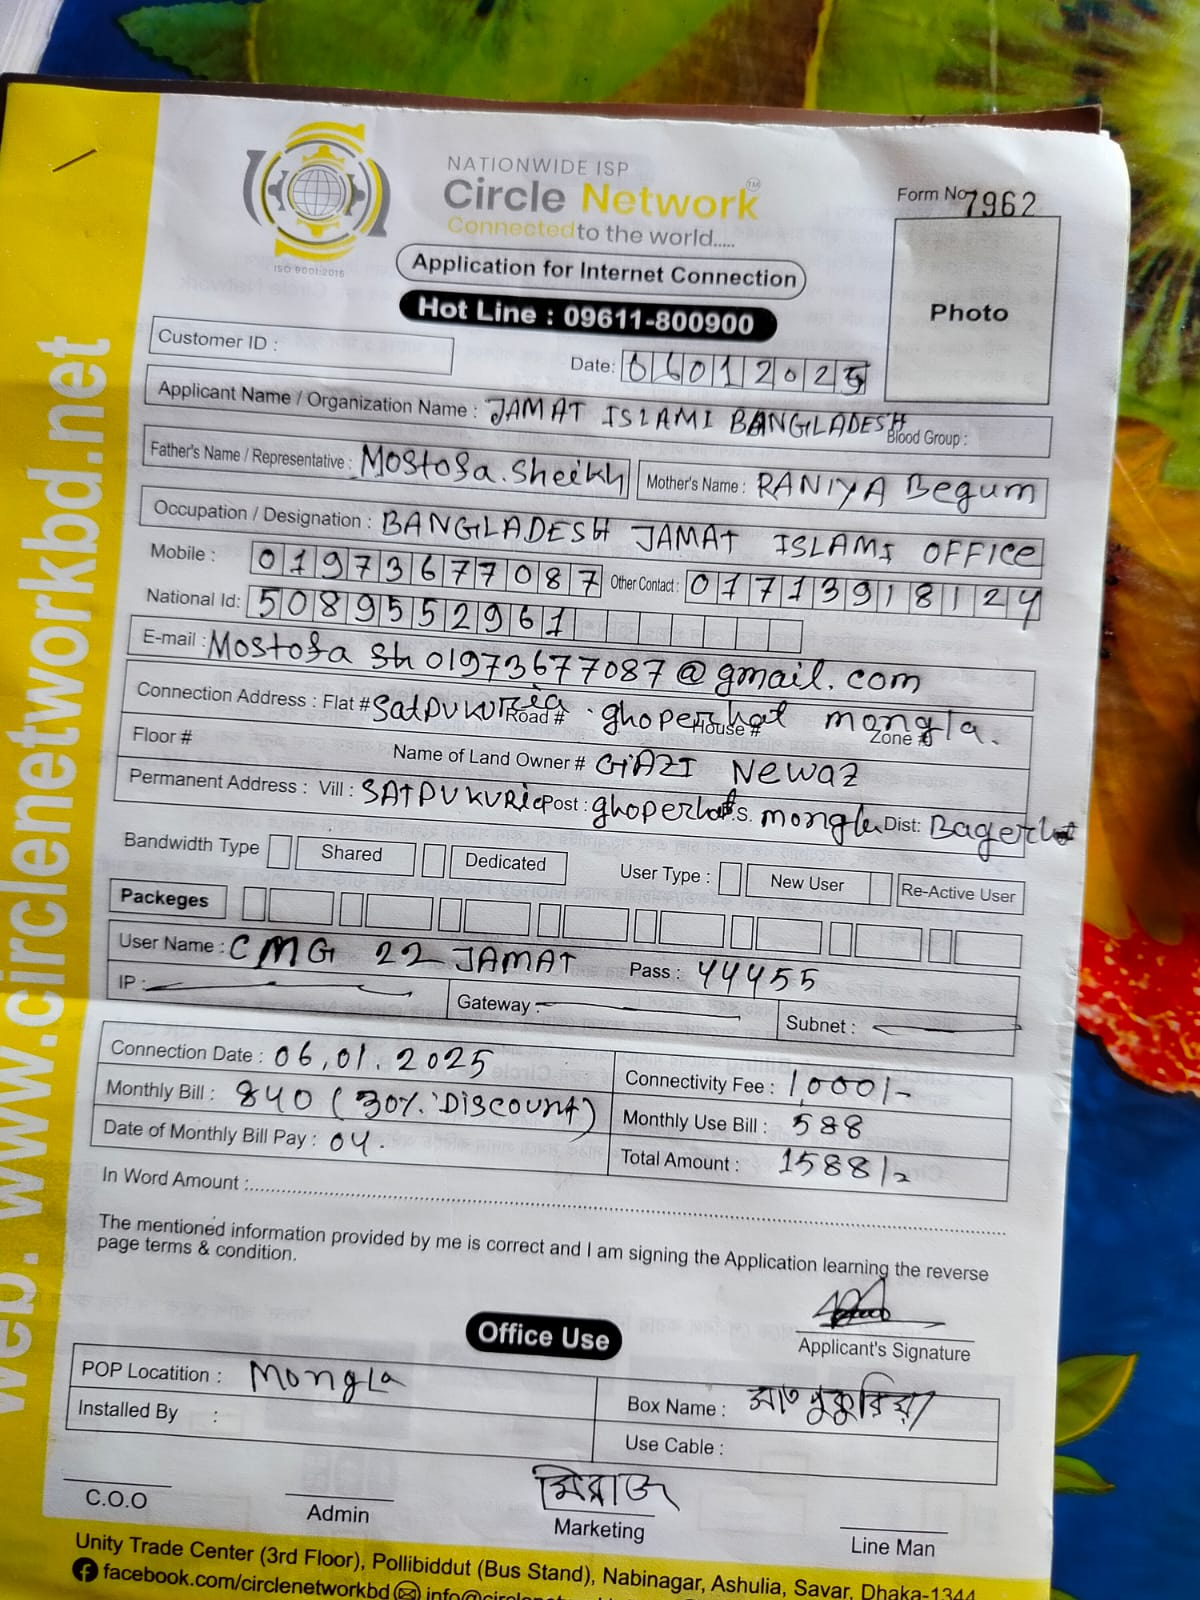 NATIONWIDE ISP
Circle Network™
Connected to the world.....
ISO 9001:2015
Form No 7962
Application for Internet Connection
Hot Line : 09611-800900
Photo
Customer ID :
Date: 06012025
Applicant Name / Organization Name : JAMAT ISLAMI BANGLADESH Blood Group :
Father's Name / Representative : Mostofa. Sheikh Mother's Name : RANIYA Begum
Occupation / Designation : BANGLADESH JAMAT ISLAMI OFFICE
Mobile : 01973677087 Other Contact : 01713918124
National Id: 5089552961
E-mail : Mostofa Sh 01973677087@gmail.com
Connection Address : Flat # SatPUKURia Road # ghoperhat House # mongla. Zone #
Floor # Name of Land Owner # GAZI Newaz
Permanent Address : Vill : SATPUKURia Post : ghoperhat P.S. mongla Dist: Bagerhat
Bandwidth Type Shared Dedicated User Type : New User Re-Active User
Packeges
User Name : CMG 22 JAMAT Pass : 44455
IP : Gateway : Subnet :
Connection Date : 06,01.2025 Connectivity Fee : 1,000/-
Monthly Bill : 840 (30% DISCOUNT) Monthly Use Bill : 588
Date of Monthly Bill Pay : 04. Total Amount : 1588/=
In Word Amount :
The mentioned information provided by me is correct and I am signing the Application learning the reverse
page terms & condition.
Applicant's Signature
Office Use
POP Locatition : MongLa Box Name : সাতপুকুরিয়া
Installed By : Use Cable :
মিরাজ
C.O.O Admin Marketing Line Man
Unity Trade Center (3rd Floor), Pollibiddut (Bus Stand), Nabinagar, Ashulia, Savar, Dhaka-1344
facebook.com/circlenetworkbd
web: www.circlenetworkbd.net